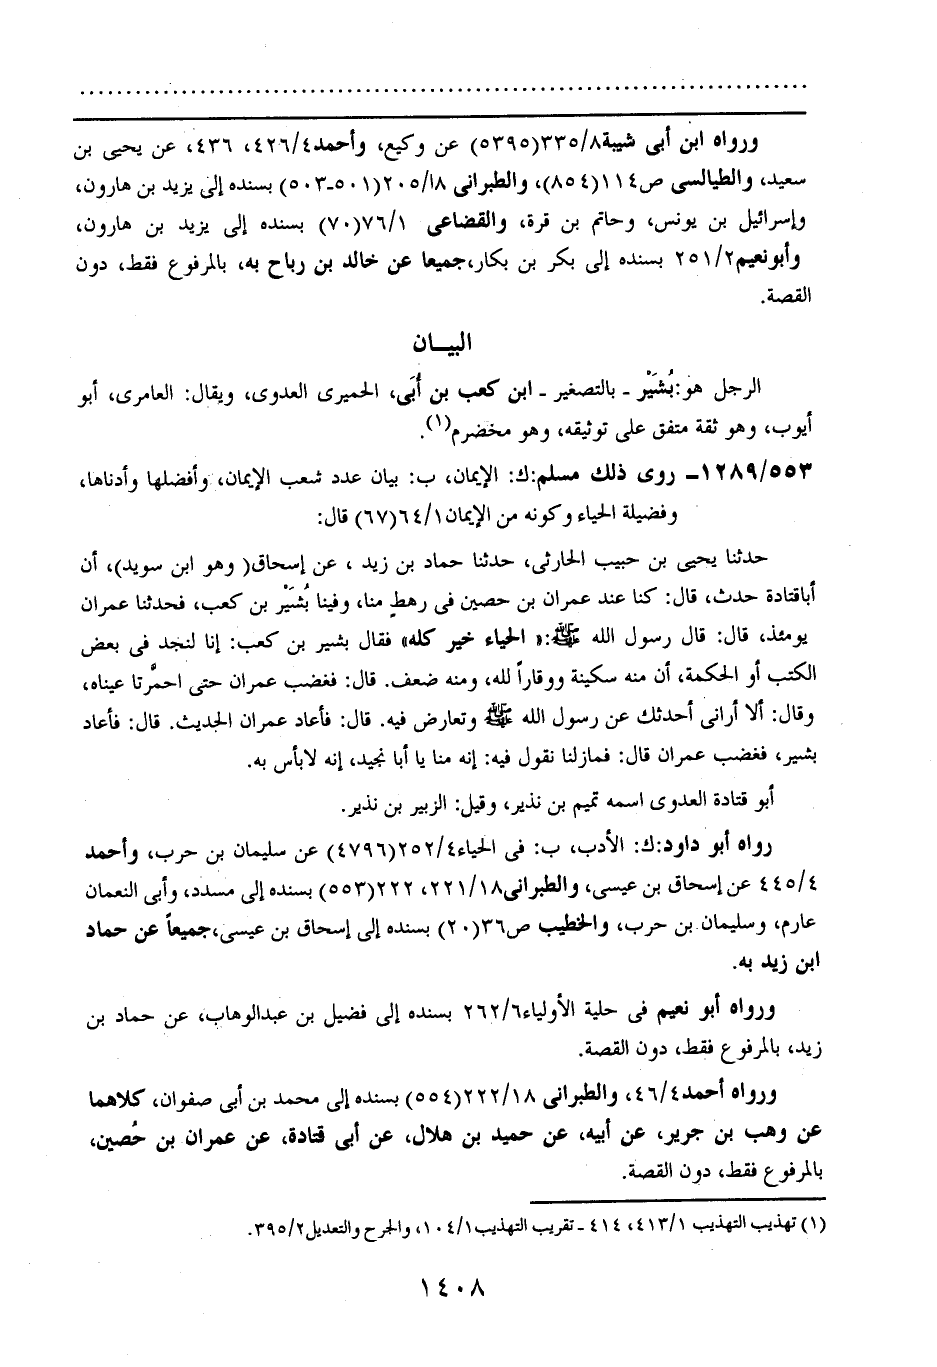 ورواه ابن أبى شيبة٣٣٥/٨(٥٣٩٥) عن وكيع، وأحمد٤٢٦/٤، ٤٣٦، عن يحيى بن
سعيد، والطيالسى ص١١٤(٨٥٤)، والطبرانى ٢٠٥/١٨(٥٠١-٥٠٣) بسنده إلى يزيد بن هارون،
وإسرائيل بن يونس، وحاتم بن قرة، والقضاعى ٧٦/١(٧٠) بسنده إلى يزيد بن هارون،
وأبونعيم٢٥١/٢ بسنده إلى بكر بن بكار،جميعا عن خالد بن رباح به، بالمرفوع فقط، دون
القصة.
البيـــان
الرجل هو:بُشَيْر ـ بالتصغير ـ ابن كعب بن أُبَى، الحميرى العدوى، ويقال: العامرى، أبو
أيوب، وهو ثقة متفق على توثيقه، وهو مخضرم(١).
١٢٨٩/٥٥٣ـ روى ذلك مسلم:ك: الإيمان، ب: بيان عدد شعب الإيمان، وأفضلها وأدناها،
وفضيلة الحياء وكونه من الإيمان٦٤/١(٦٧) قال:
حدثنا يحيى بن حبيب الحارثى، حدثنا حماد بن زيد ، عن إسحاق( وهو ابن سويد)، أن
أباقتادة حدث، قال: كنا عند عمران بن حصين فى رهطٍ منا، وفينا بُشَيْر بن كعب، فحدثنا عمران
يومئذ، قال: قال رسول الله ﷺ:« الحياء خير كله» فقال بشير بن كعب: إنا لنجد فى بعض
الكتب أو الحكمة، أن منه سكينة ووقاراً لله، ومنه ضعف. قال: فغضب عمران حتى احمرَّتا عيناه،
وقال: ألا أرانى أحدثك عن رسول الله ﷺ وتعارض فيه. قال: فأعاد عمران الحديث. قال: فأعاد
بشير، فغضب عمران قال: فمازلنا نقول فيه: إنه منا يا أبا نجيد، إنه لابأس به.
أبو قتادة العدوى اسمه تميم بن نذير، وقيل: الزبير بن نذير.
رواه أبو داود:ك: الأدب، ب: فى الحياء٢٥٢/٤(٤٧٩٦) عن سليمان بن حرب، وأحمد
٤٤٥/٤ عن إسحاق بن عيسى، والطبرانى٢٢١/١٨، ٢٢٢(٥٥٣) بسنده إلى مسدد، وأبى النعمان
عارم، وسليمان بن حرب، والخطيب ص٣٦(٢٠) بسنده إلى إسحاق بن عيسى،جميعاً عن حماد
ابن زيد به.
ورواه أبو نعيم فى حلية الأولياء٢٦٢/٦ بسنده إلى فضيل بن عبدالوهاب، عن حماد بن
زيد، بالمرفوع فقط، دون القصة.
ورواه أحمد٤٦/٤، والطبرانى ٢٢٢/١٨(٥٥٤) بسنده إلى محمد بن أبى صفوان، كلاهما
عن وهب بن جرير، عن أبيه، عن حميد بن هلال، عن أبى قتادة، عن عمران بن حُصين،
بالمرفوع فقط، دون القصة.
(١) تهذيب التهذيب ٤١٣/١، ٤١٤ ـ تقريب التهذيب١٠٤/١، والجرح والتعديل٣٩٥/٢.
١٤٠٨